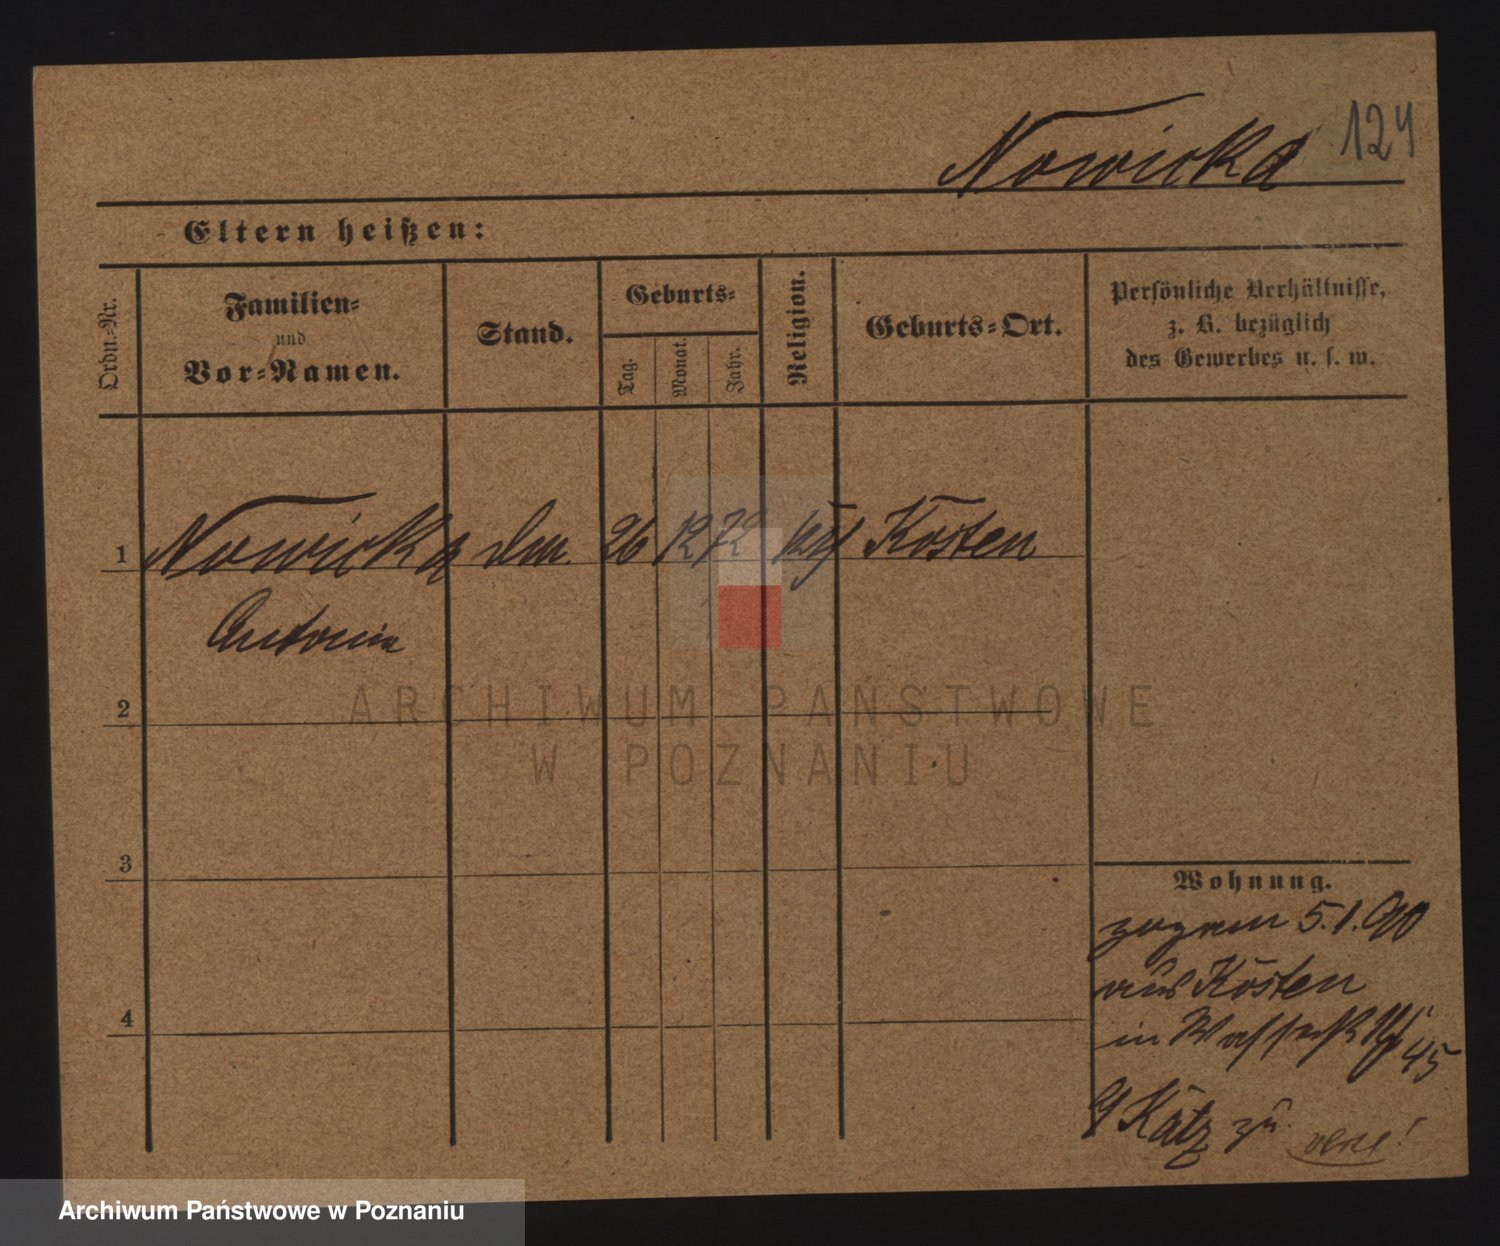 Nowicka 124
Eltern heißen:
Ordn.-Nr.
Familien-
und
Vor-Namen.
Stand.
Geburts-
Tag.
Monat.
Jahr.
Religion.
Geburts-Ort.
Persönliche Verhältnisse,
z. B. bezüglich
des Gewerbes u. s. w.
1 Nowicka 26 12 72 Kosten
Antonie
2
3
4
ARCHIWUM PAŃSTWOWE
W POZNANIU
Wohnung.
5.1.90
aus Kosten
in 45
Katz zu
Archiwum Państwowe w Poznaniu